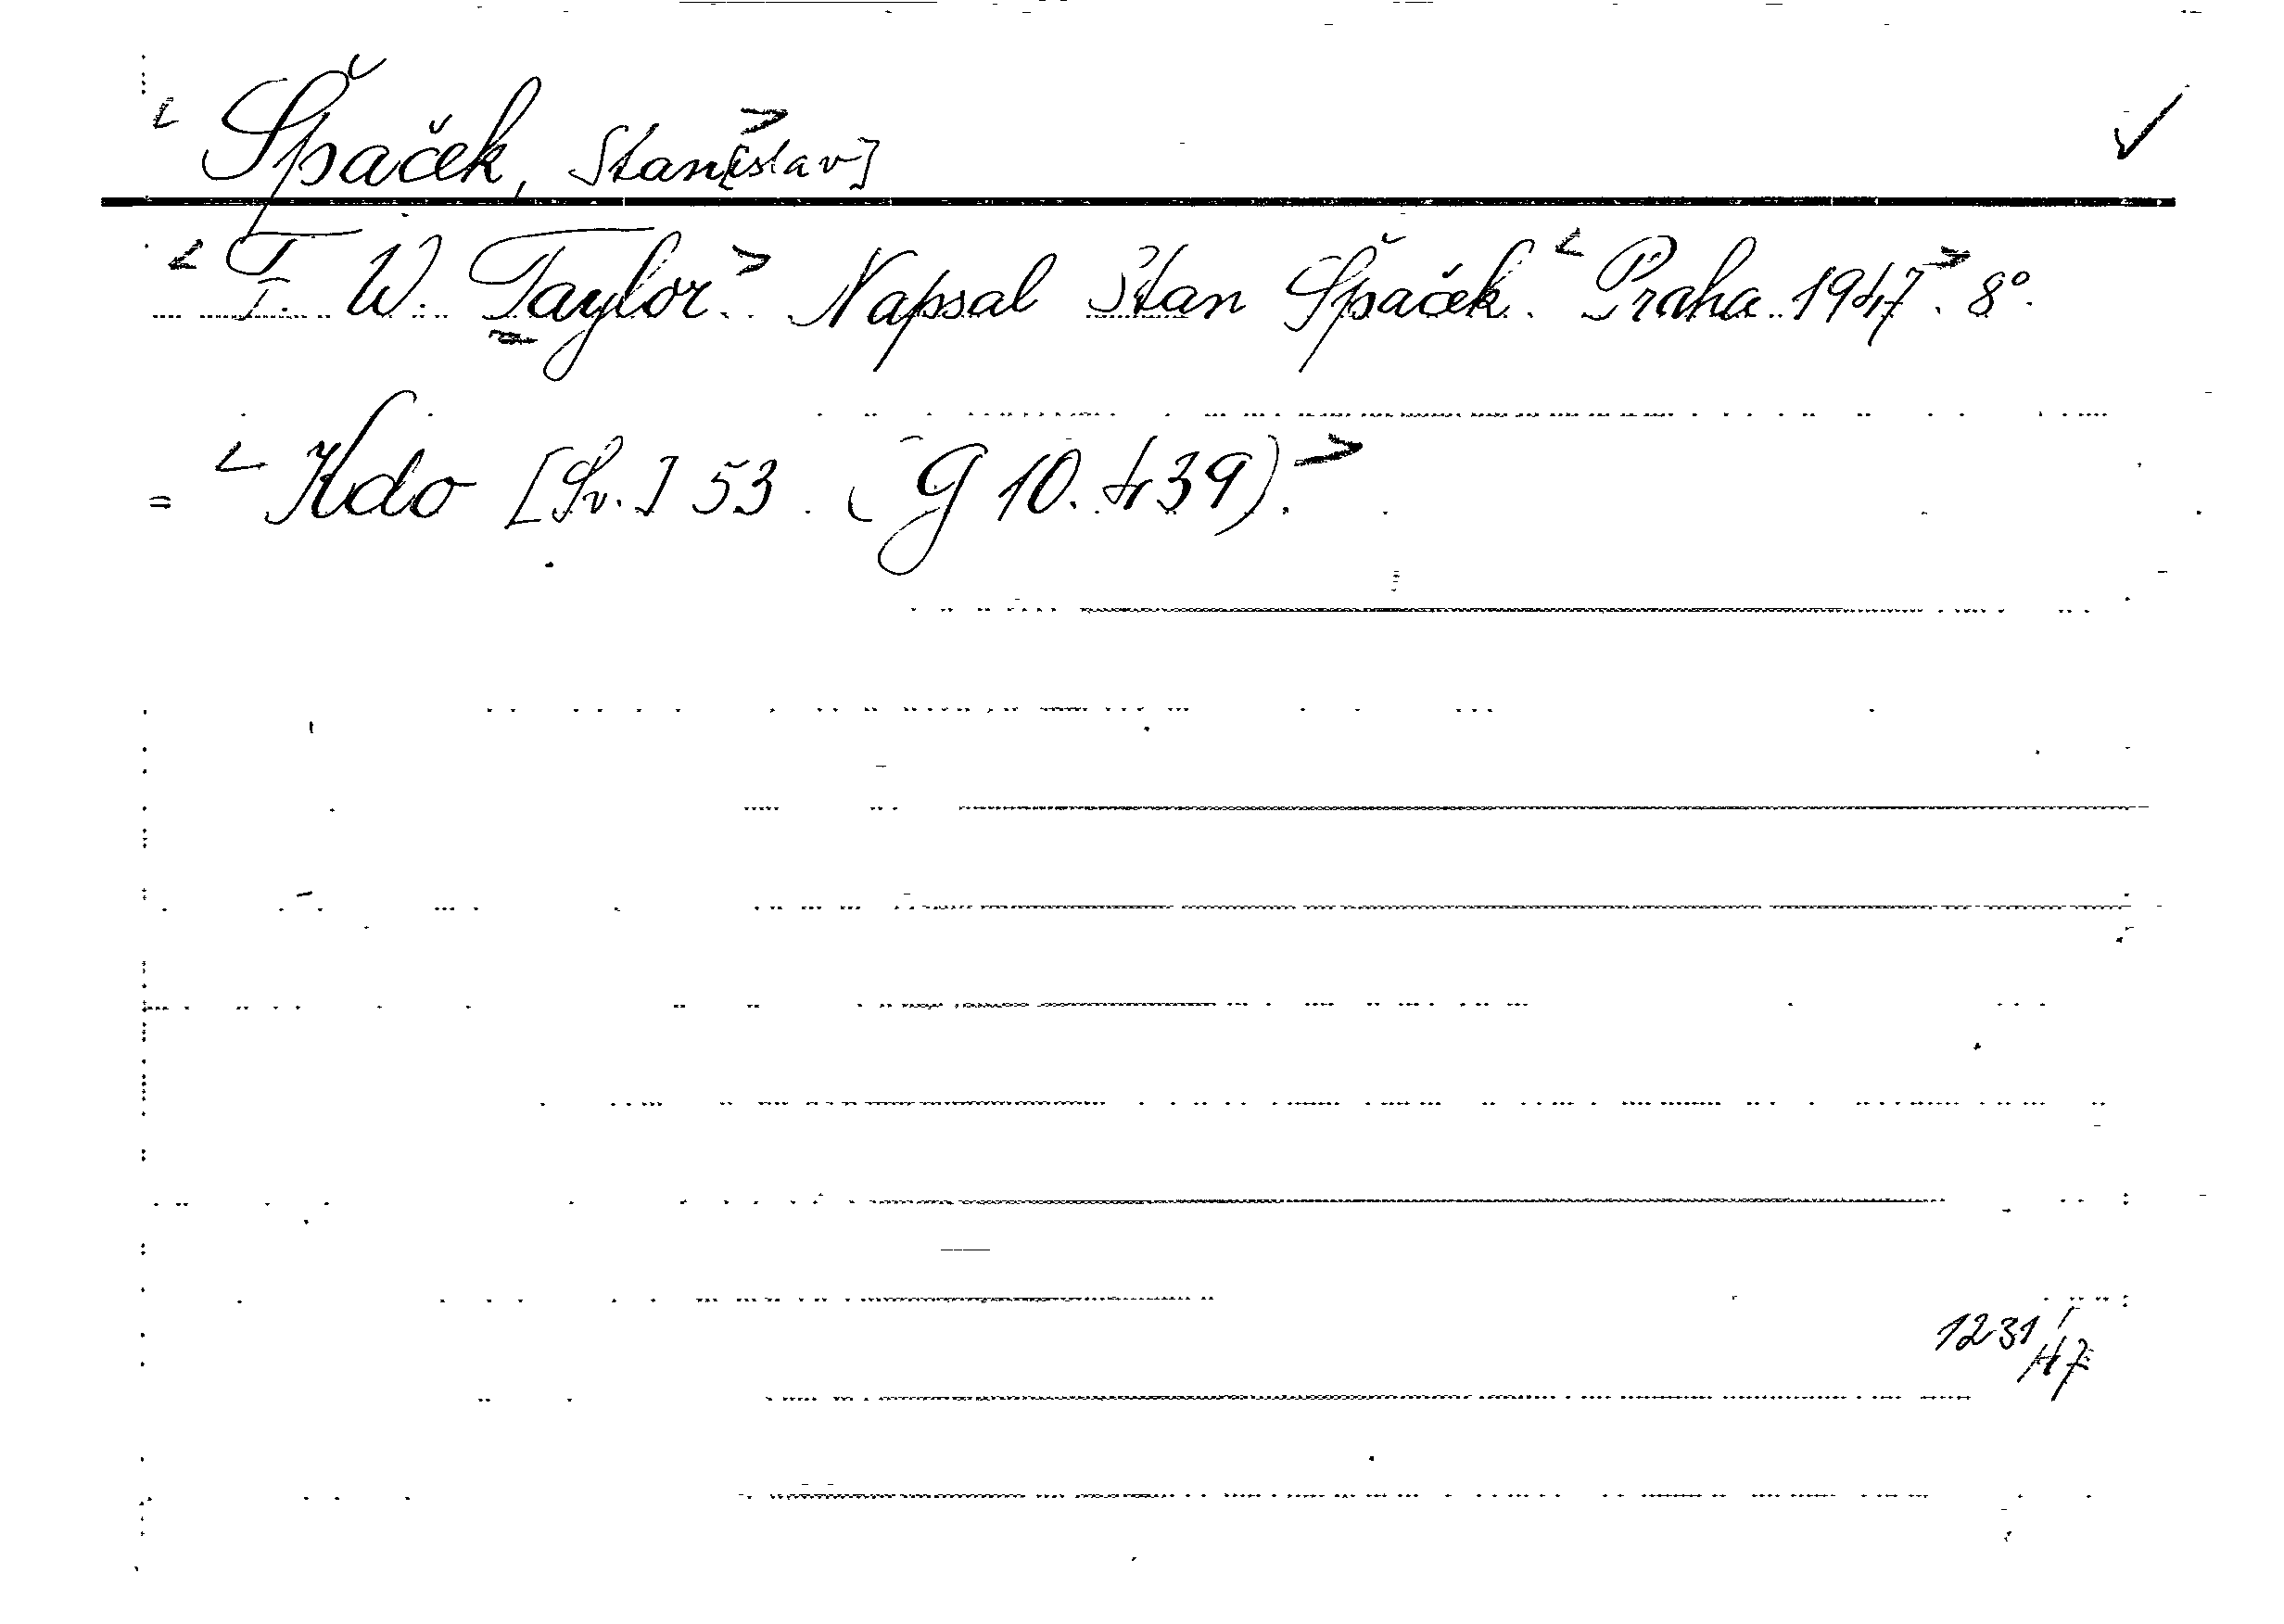 < Špaček, Stan[islav] > ✓
< F. W. Taylor. > Napsal Stan Špaček. < Praha 1947. > 8°.
= < Kdo [Sv.] 53. (G 10.439). >
1231/47